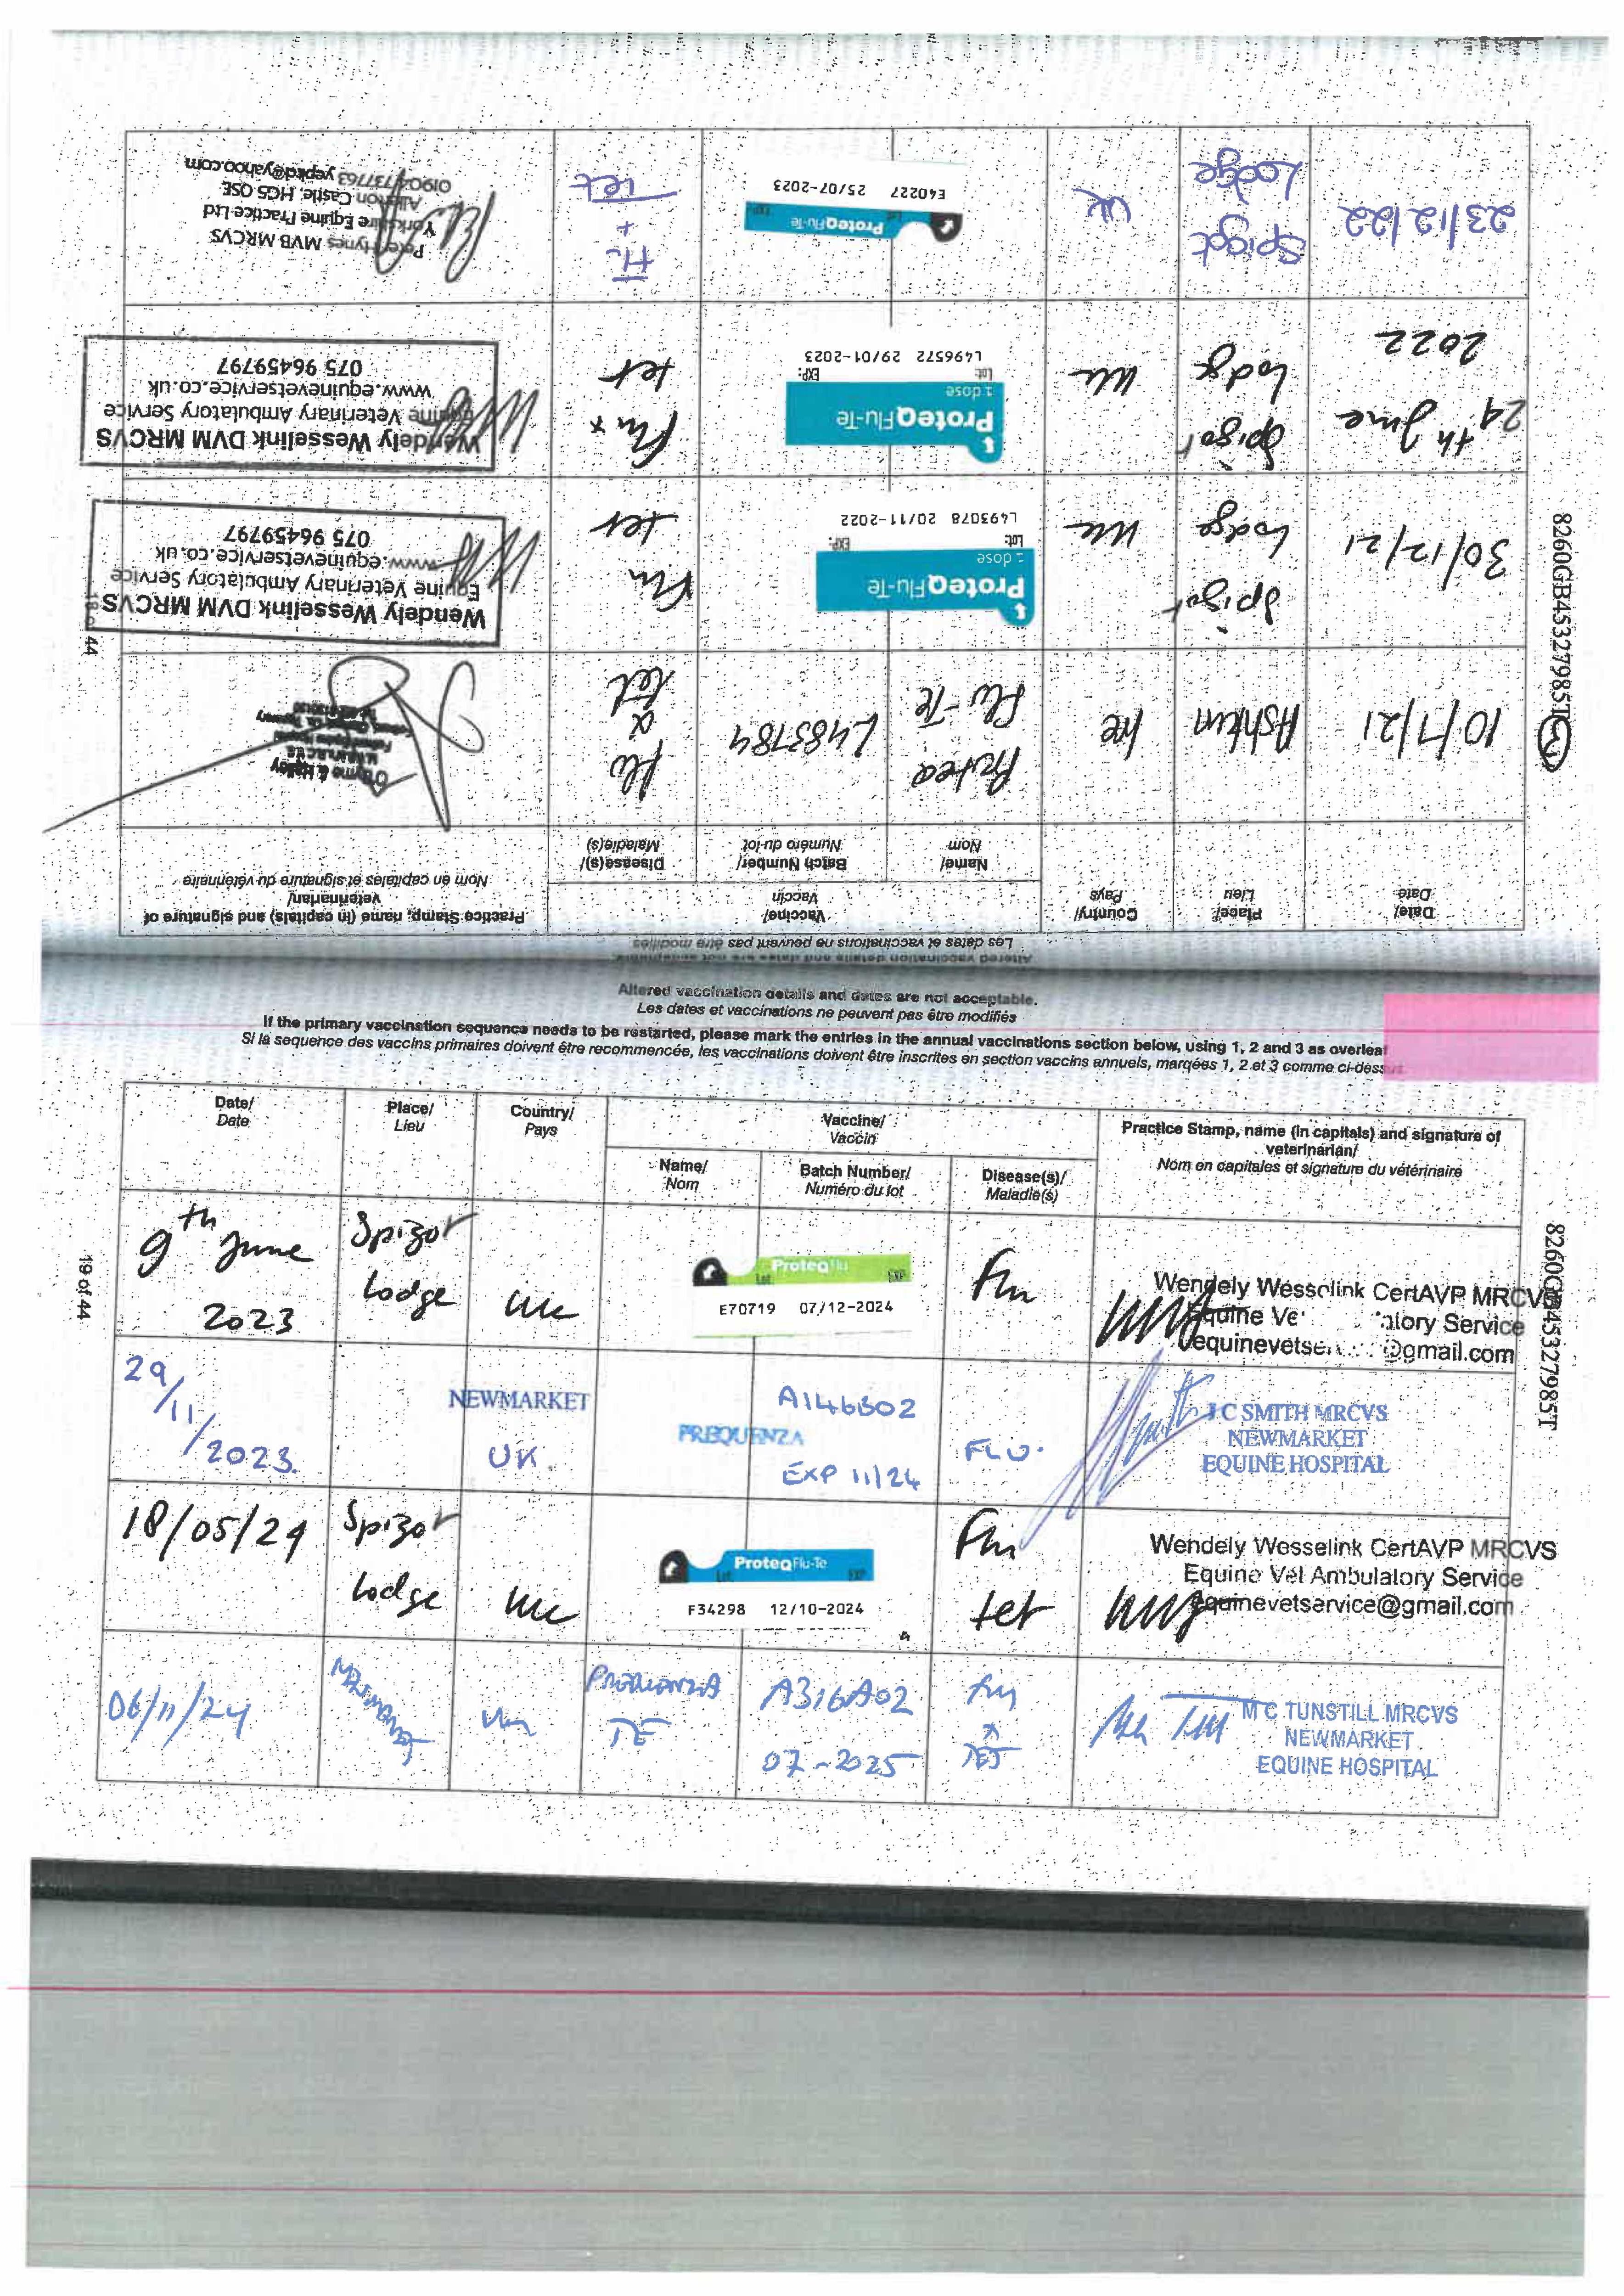 8260GB45327985T
18 of 44
Les dates et vaccinations ne peuvent pas être modifiés
Date/
Date
Place/
Lieu
Country/
Pays
Vaccine/
Vaccin
Name/
Nom
Batch Number/
Numéro du lot
Disease(s)/
Maladie(s)
Practice Stamp, name (in capitals) and signature of
veterinarian/
Nom en capitales et signature du vétérinaire
10/7/21
Ire
Proteq
Flu-Te
L483784
Flu
&
tet
30/12/21
Spigot
Lodge
UK
ProteqFlu-Te
1 dose
Lot:
EXP:
L493078 20/11-2022
Flu
tet
Wendely Wesselink DVM MRCVS
Equine Veterinary Ambulatory Service
www.equinevetservice.co.uk
075 96459797
24th June
2022
Spigot
Lodge
UK
ProteqFlu-Te
1 dose
Lot:
EXP:
L496572 29/01-2023
Flu +
tet
Wendely Wesselink DVM MRCVS
Equine Veterinary Ambulatory Service
www.equinevetservice.co.uk
075 96459797
23/12/22
Spigot
Lodge
UK
ProteqFlu-Te
E40227 25/07-2023
Fl
+
Tet
Peter Hynes MVB MRCVS
Yorkshire Equine Practice Ltd
Allerton Castle, HG5 0SE
01902 737763 yepkd@yahoo.com
Altered vaccination details and dates are not acceptable.
Les dates et vaccinations ne peuvent pas être modifiés
If the primary vaccination sequence needs to be restarted, please mark the entries in the annual vaccinations section below, using 1, 2 and 3 as overleaf
Si la sequence des vaccins primaires doivent être recommencée, les vaccinations doivent être inscrites en section vaccins annuels, marqées 1, 2 et 3 comme ci-dess
Date/
Date
Place/
Lieu
Country/
Pays
Vaccine/
Vaccin
Name/
Nom
Batch Number/
Numéro du lot
Disease(s)/
Maladie(s)
Practice Stamp, name (in capitals) and signature of
veterinarian/
Nom en capitales et signature du vétérinaire
8260GB45327985T
19 of 44
9th June
2023
Spigot
Lodge
UK
ProteqFlu
Lot
EXP
E70719 07/12-2024
Flu
Wendely Wesselink CertAVP MRCVS
Equine Ve atory Service
equinevetse @gmail.com
29/11/2023.
NEWMARKET
UK.
PREQUENZA
A146B02
EXP 11/24
FLU.
J C SMITH MRCVS
NEWMARKET
EQUINE HOSPITAL
18/05/24
Spigot
Lodge
UK
ProteqFlu-Te
Lot
EXP
F34298 12/10-2024
Flu
tet
Wendely Wesselink CertAVP MRCVS
Equine Vet Ambulatory Service
equinevetservice@gmail.com
06/11/24
Newmarket
UK
Prequenza
TE
A316A02
07-2025
Flu
+
TET
M C TUNSTILL MRCVS
NEWMARKET
EQUINE HOSPITAL